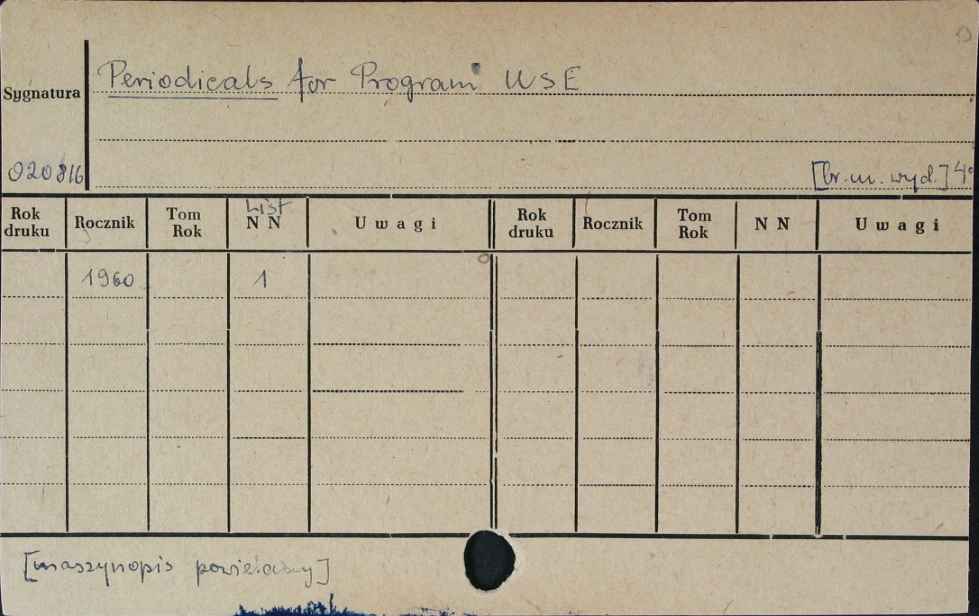 Periodicals for Program USE
Sygnatura
020816
[br. m. wyd.] 4°
Rok druku Rocznik Tom Rok List N N Uwagi Rok druku Rocznik Tom Rok N N Uwagi
1960 1
[maszynopis powielany]